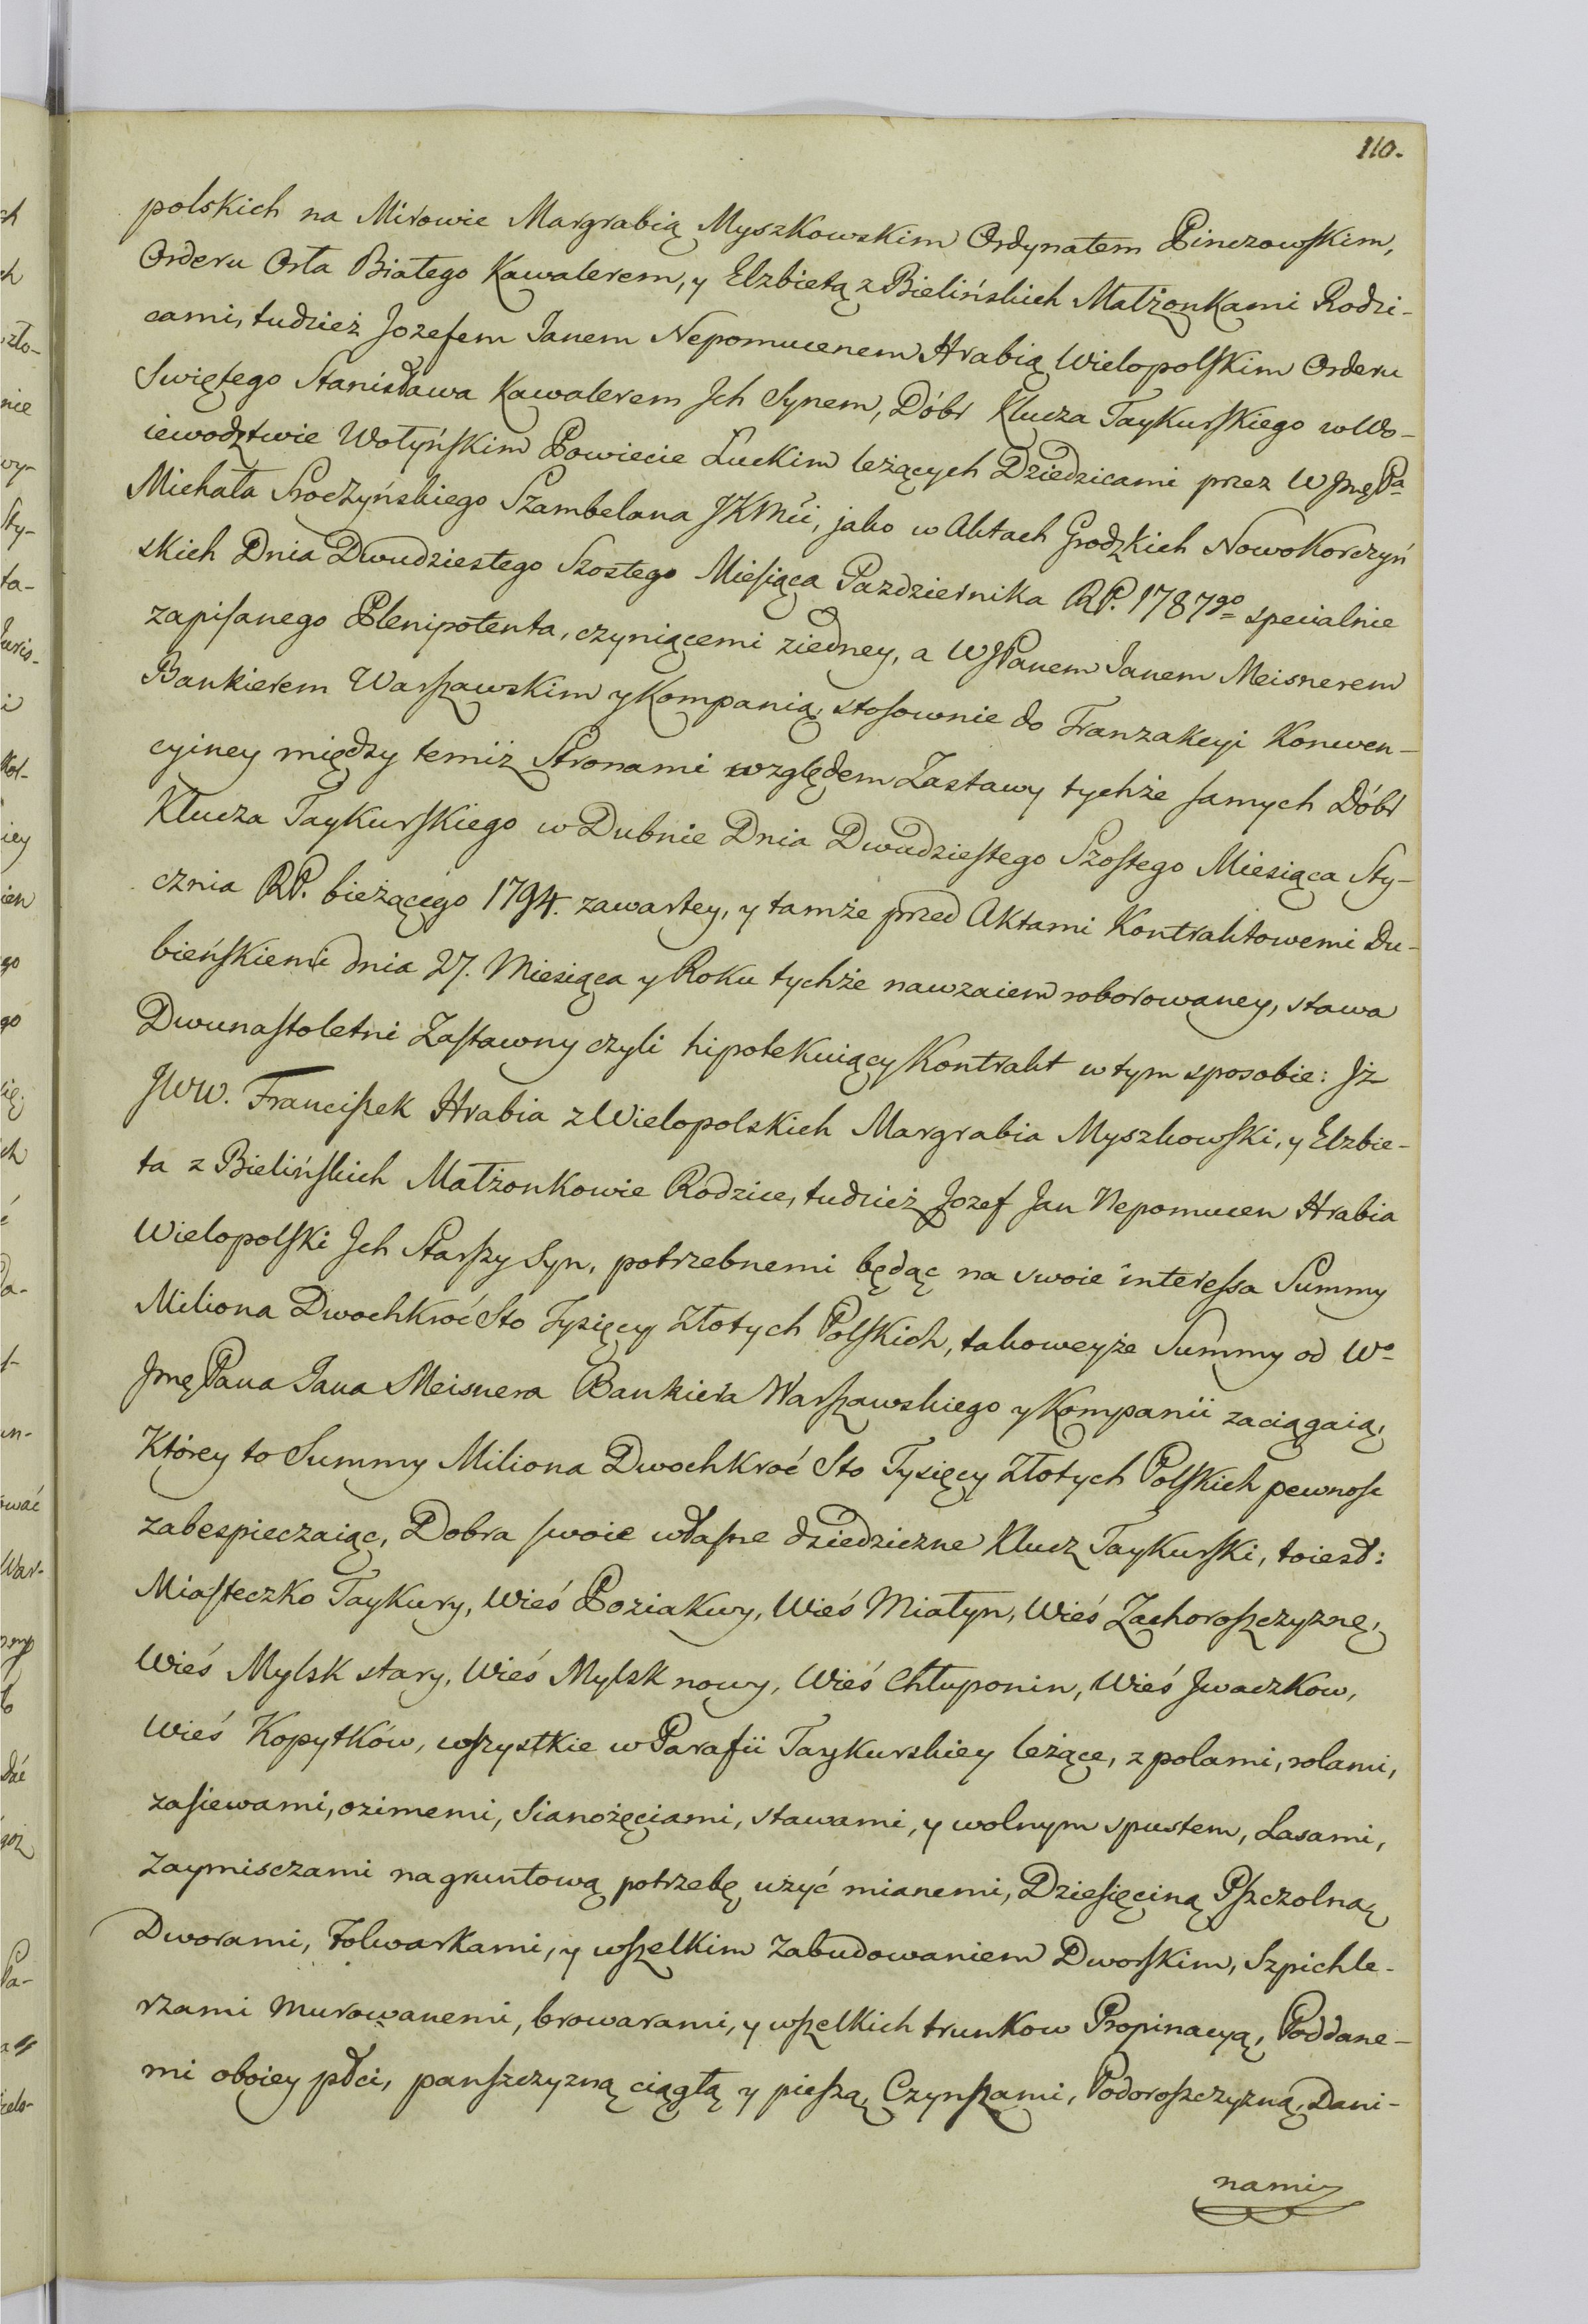 110.
polskich na Mirowie Margrabią Myszkowskim Ordynatem Pinczowskim,
Orderu Orła Białego Kawalerem, y Elzbietą z Bielińskich Małżonkami Rodzi-
cami, tudzież Jozefem Janem Nepomucenem Hrabią Wielopolskim Orderu
Swiętego Stanisława Kawalerem Jch Synem, Dóbr Klucza Taykurskiego w Wo-
iewodztwie Wołyńskim Powiecie Łuckim leżących Dziedzicami przez W Jmę Pa
Michała Sroczyńskiego Szambelana JKMci, jako w Aktach Grodzkich NowoKorczyń
skich Dnia Dwudziestego Szostego Miesiąca Pazdziernika RP. 1787go specialnie
zapisanego Plenipotenta, czyniącemi ziedney, a WJPanem Janem Meisnerem
Bankierem Warszawskim y Kompanią, stosownie do Tranzakcyi Konwen-
cyiney między temiż Stronami względem Zastawy tychże samych Dóbr
Klucza Taykurskiego w Dubnie Dnia Dwudziestego Szostego Miesiąca Sty-
cznia RP. bieżącego 1794. zawartey, y tamże przed Aktami Kontraktowemi Du-
bieńskiemi dnia 27. Miesiąca y Roku tychże nawzaiem roborowaney, stawa
Dwunastoletni Zastawny czyli hipotekuiący Kontrakt w tym sposobie: Jż
JWW. Franciszek Hrabia z Wielopolskich Margrabia Myszkowski, y Elzbie-
ta z Bielińskich Małżonkowie Rodzice, tudzież Jozef Jan Nepomucen Hrabia
Wielopolski Jch Starszy Syn, potrzebnemi będąc na swoie interessa Summy
Miliona Dwochkroć Sto Tysięcy Złotych Polskich, takoweyże Summy od Wo
Jmę Pana Jana Meisnera Bankiera Warszawskiego y Kompanii zaciągaią,
Którey to Summy Miliona Dwochkroć Sto Tysięcy Złotych Polskich pewnosc
zabespieczaiąc, Dobra swoie własne dziedziczne Klucz Taykurski, toiest:
Miasteczko Taykury, Wieś Poziakwy, Wieś Miatyn, Wieś Zachoroszczyznę,
Wieś Mylsk stary, Wieś Mylsk nowy, Wieś Chłuponin, Wieś Jwaczkow,
Wieś Kopytków, wszystkie w Parafii Taykurskiey leżące, z polami, rolami,
zasiewami, ozimemi, Sianożęciami, stawami, y wolnym spustem, Lasami,
Zaymisczami na gruntową potrzebę użyć mianemi, Dziesięciną Pszczolną,
Dworami, Folwarkami, y wszelkim Zabudowaniem Dworskim, Szpichle-
rzami murowanemi, browarami, y wszelkich trunkow Propinacyą, Poddane-
mi oboiey płci, panszczyzną ciągłą y pieszą, Czynszami, Podoroszczyzną, Dani-
nami